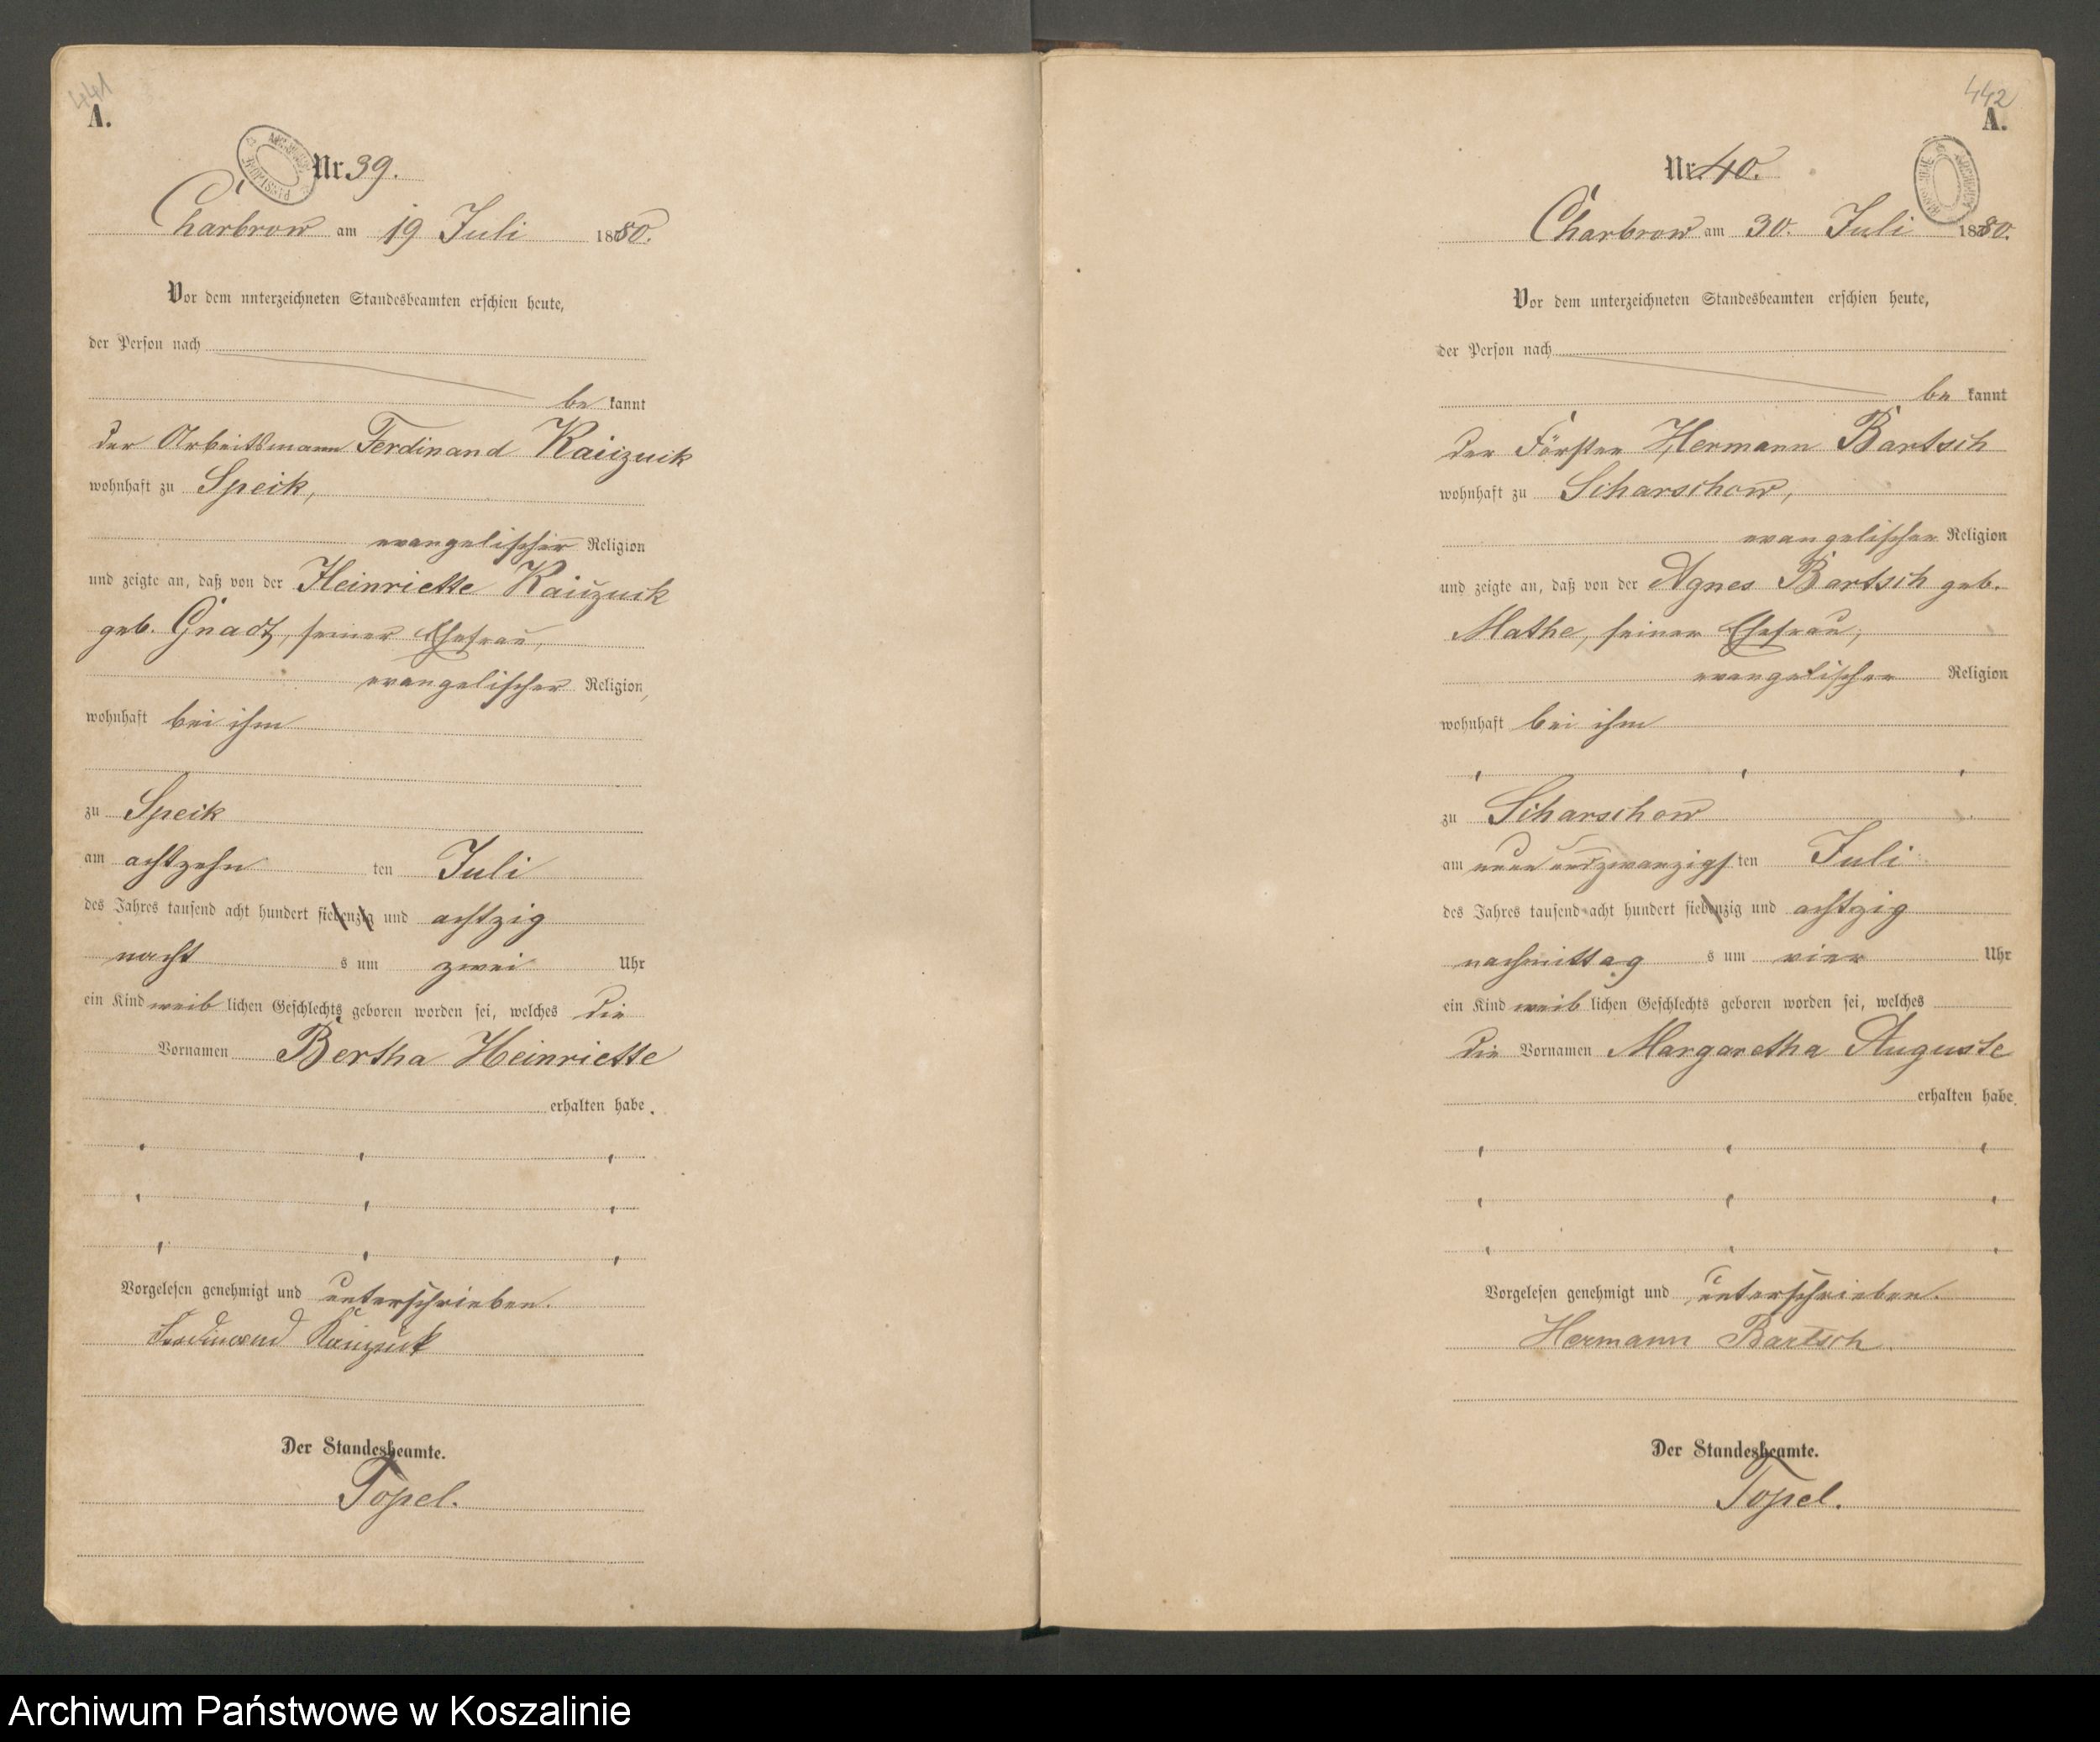 441
A.
Nr. 39.
Charbrow am 19 Juli 1880.
Vor dem unterzeichneten Standesbeamten erschien heute,
der Person nach
be kannt
der Arbeitsmann Ferdinand
wohnhaft zu Speik,
evangelischer Religion
und zeigte an, daß von der Heinriette
geb. Gnadt, seiner Ehefrau,
evangelischer Religion,
wohnhaft bei ihm
zu Speik
am achtzehn ten Juli
des Jahres tausend acht hundert siebenzig und achtzig
nacht s um zwei Uhr
ein Kind weib lichen Geschlechts geboren worden sei, welches die
Vornamen Bertha Heinriette
erhalten habe.
Vorgelesen genehmigt und unterschrieben.
Ferdinand
Der Standesbeamte.
Topel.
442
A.
Nr. 40.
Charbrow am 30. Juli 1880.
Vor dem unterzeichneten Standesbeamten erschien heute,
der Person nach
be kannt
der Förster Hermann Bartsch
wohnhaft zu Scharschow,
evangelischer Religion
und zeigte an, daß von der Agnes Bartsch geb.
Mathe, seiner Ehefrau,
evangelischer Religion
wohnhaft bei ihm
zu Scharschow
am neun und zwanzigs ten Juli
des Jahres tausend acht hundert siebenzig und achtzig
nachmittag s um vier Uhr
ein Kind weib lichen Geschlechts geboren worden sei, welches
die Vornamen Margaretha Auguste
erhalten habe.
Vorgelesen genehmigt und unterschrieben.
Hermann Bartsch
Der Standesbeamte.
Topel.
Archiwum Państwowe w Koszalinie